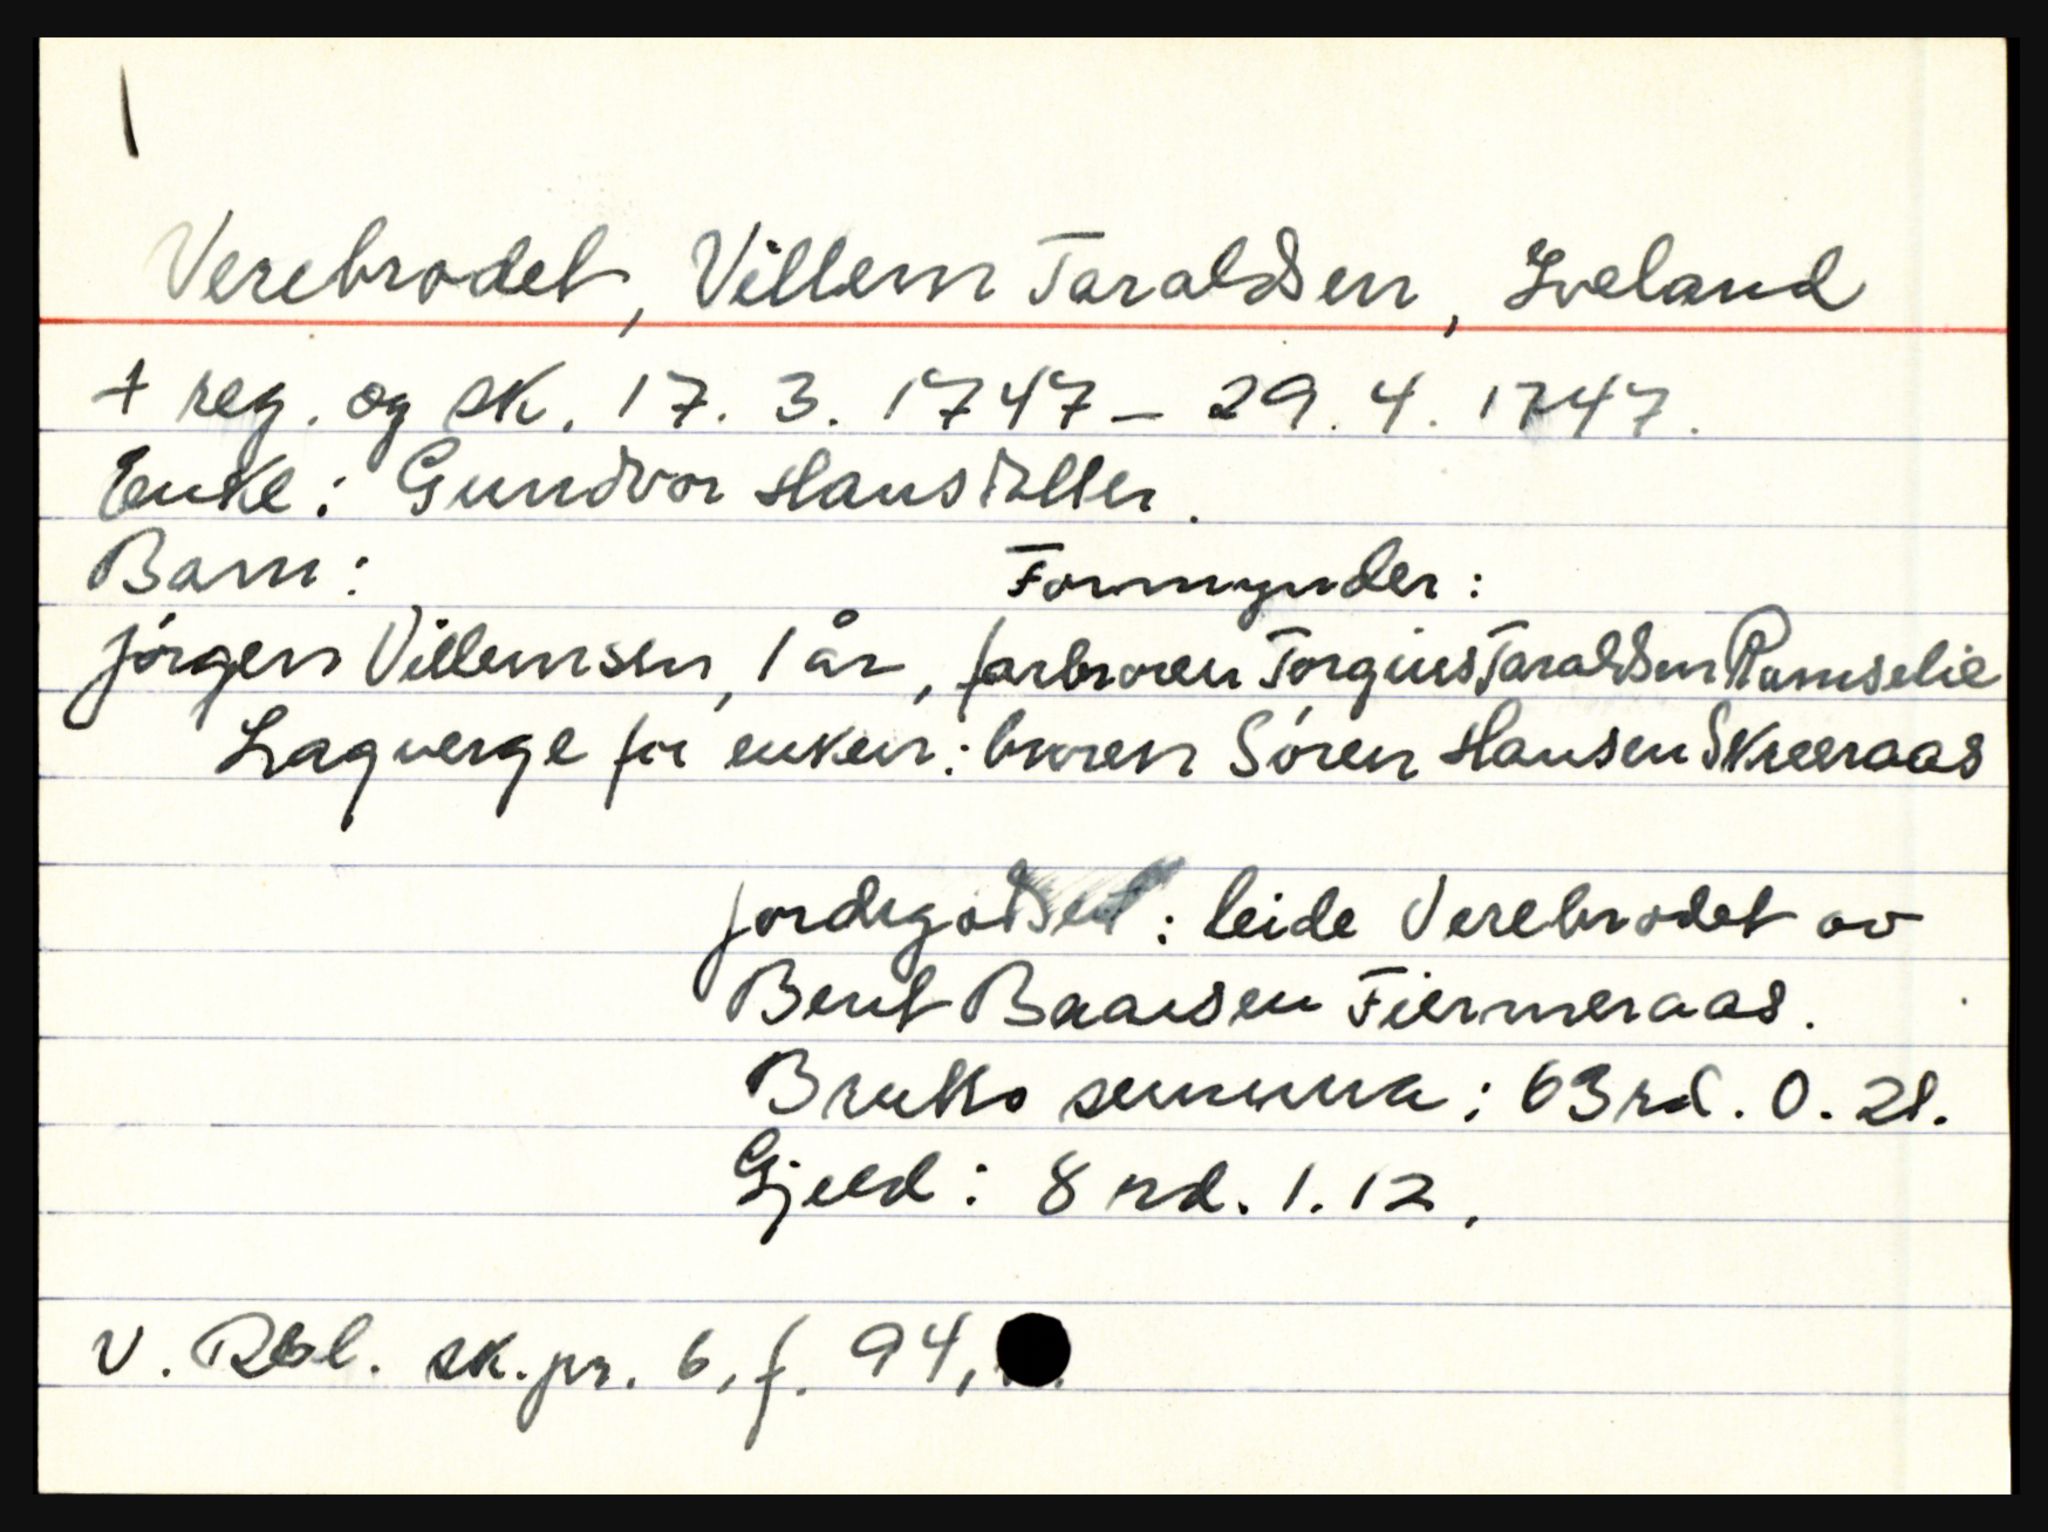 Verebrodet, Villem Taraldsen, Iveland
+ reg. og sk. 17. 3. 1747 - 29. 4. 1747.
Enke: Gundvor Hansdatter.
Barn: Formynder:
Jørgen Villemsen, 1 år, farbroren Torgius Taraldsen Ramselie
Lagverge for enken: broren Søren Hansen Skreeraas
Jordegodset: leide Verebrodet av
Bent Baarsen Fiermeraas.
Brutto summa: 63 rd. 0. 21.
Gjeld: 8 rd. 1. 12.
V. Rbl. sk.pr. 6, f. 94,